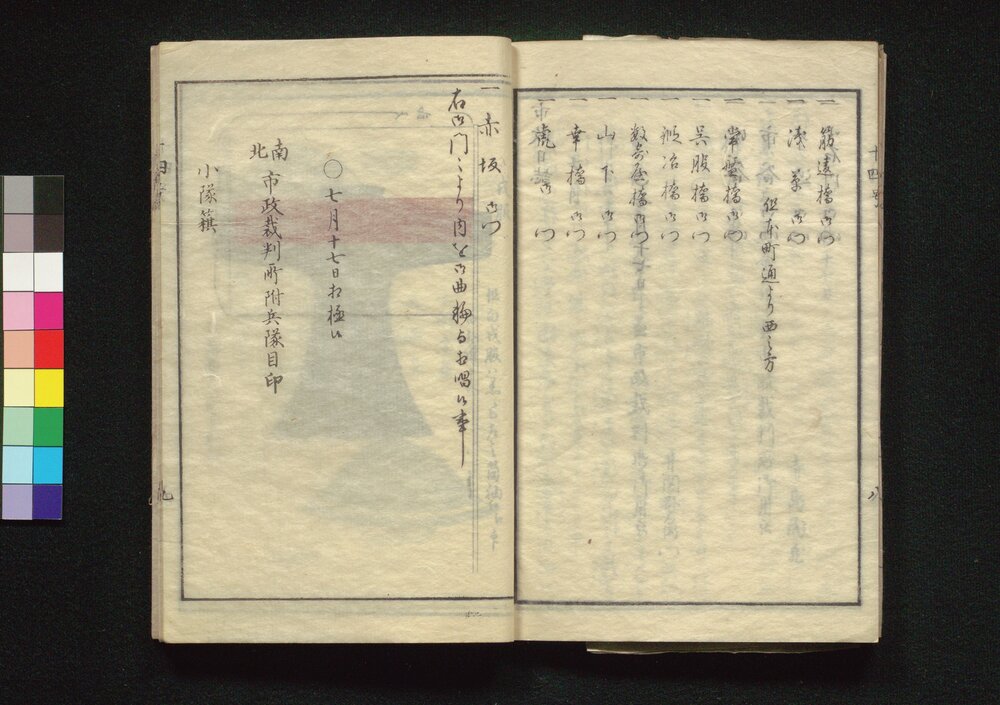 一 筋違橋御門
一 浅草御門
但本町通より西之方
一 常盤橋御門
一 呉服橋御門
一 鍛冶橋御門
一 数寄屋橋御門
一 山下御門
一 幸橋御門
一 虎御門
一 赤坂御門
右御門々より内を御曲輪与相唱候事
〇七月十七日相極候
南北市政裁判所附兵隊目印
小隊籏
十四号
八
九